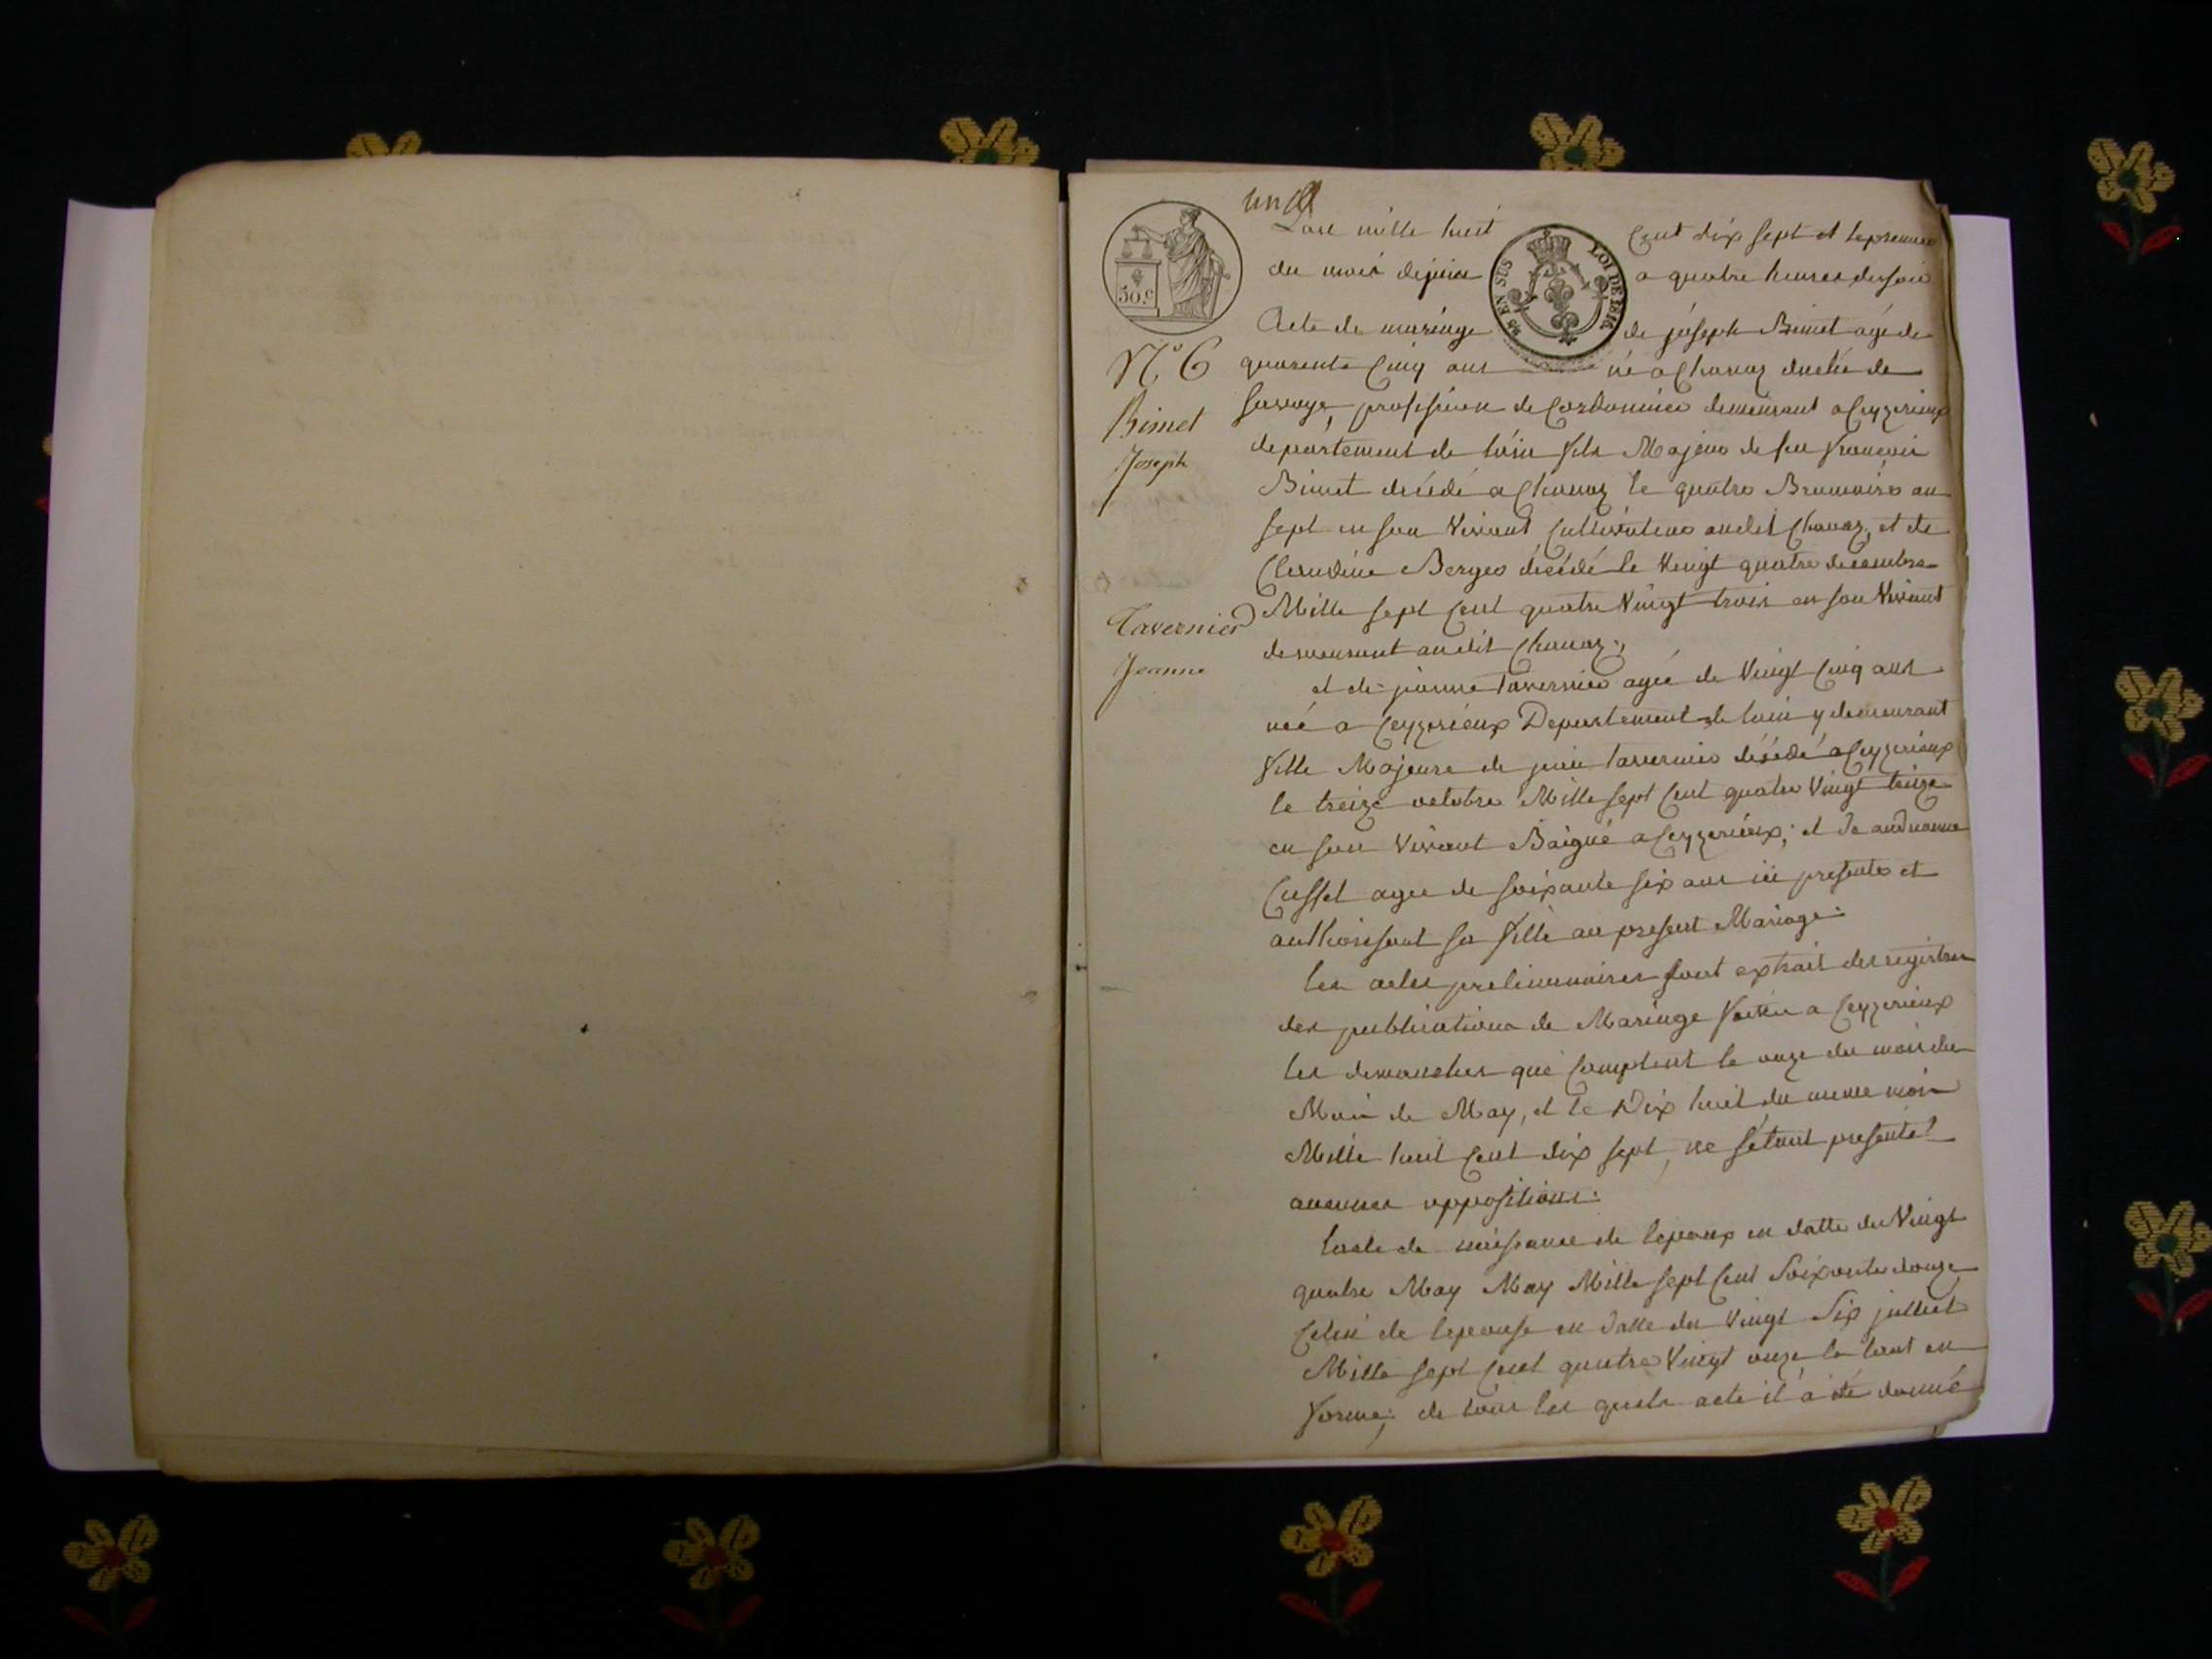 un
Lan mille huit cent dix sept et le premier
du mois de juin a quatre heures du soir
50.c
EN SUS
LOI DE 1816
Acte de mariage de joseph Bimet agé de
N.o 6
quarente cinq ans né a Chanaz duché de
Savoye, profession de Cordonnier demeurant a Ceyzerieux
Bimet
Joseph
departement de lain fils Majeur de feu francois
Bimet décédé a Chanaz le quatre Brumaire an
sept en son Vivant Cultivateur audit Chanaz, et de
Claudine Berger décédé le Vingt quatre decembre
Mille sept Cent quatre Vingt trois en son Vivant
Tavernier
Jeanne
demeurant audit Chanaz.,
et de jeanne Tavernier agée de Vingt Cinq ans
née a Ceyzerieux Departement de lain y demeurant
fille Majeure de Tavernier décédé a Ceyzerieux
le treize octobre Mille sept Cent quatre Vingt treize
en son Vivant a Ceyzerieux; et de
Cusset agee de soixante six ans ici presente et
authorisant sa fille au present Mariage.
les actes preliminaires sont extrait des registres
des publications de Mariage faitte a Ceyzerieux
les dimanches que Comptent le onze du mois du
Mois de May, et le Dix huit du meme mois
Mille huit Cent dix sept, ne s'etant presenté
aucunes oppositions.
lacte de naissance de lepoux en datte du Vingt
quatre May May Mille sept Cent Soixante douze
Celui de lepouse en datte du Vingt Six juillet
Mille sept Cent quatre Vingt onze le tout en
forme; de tous les quels acte il a été donné